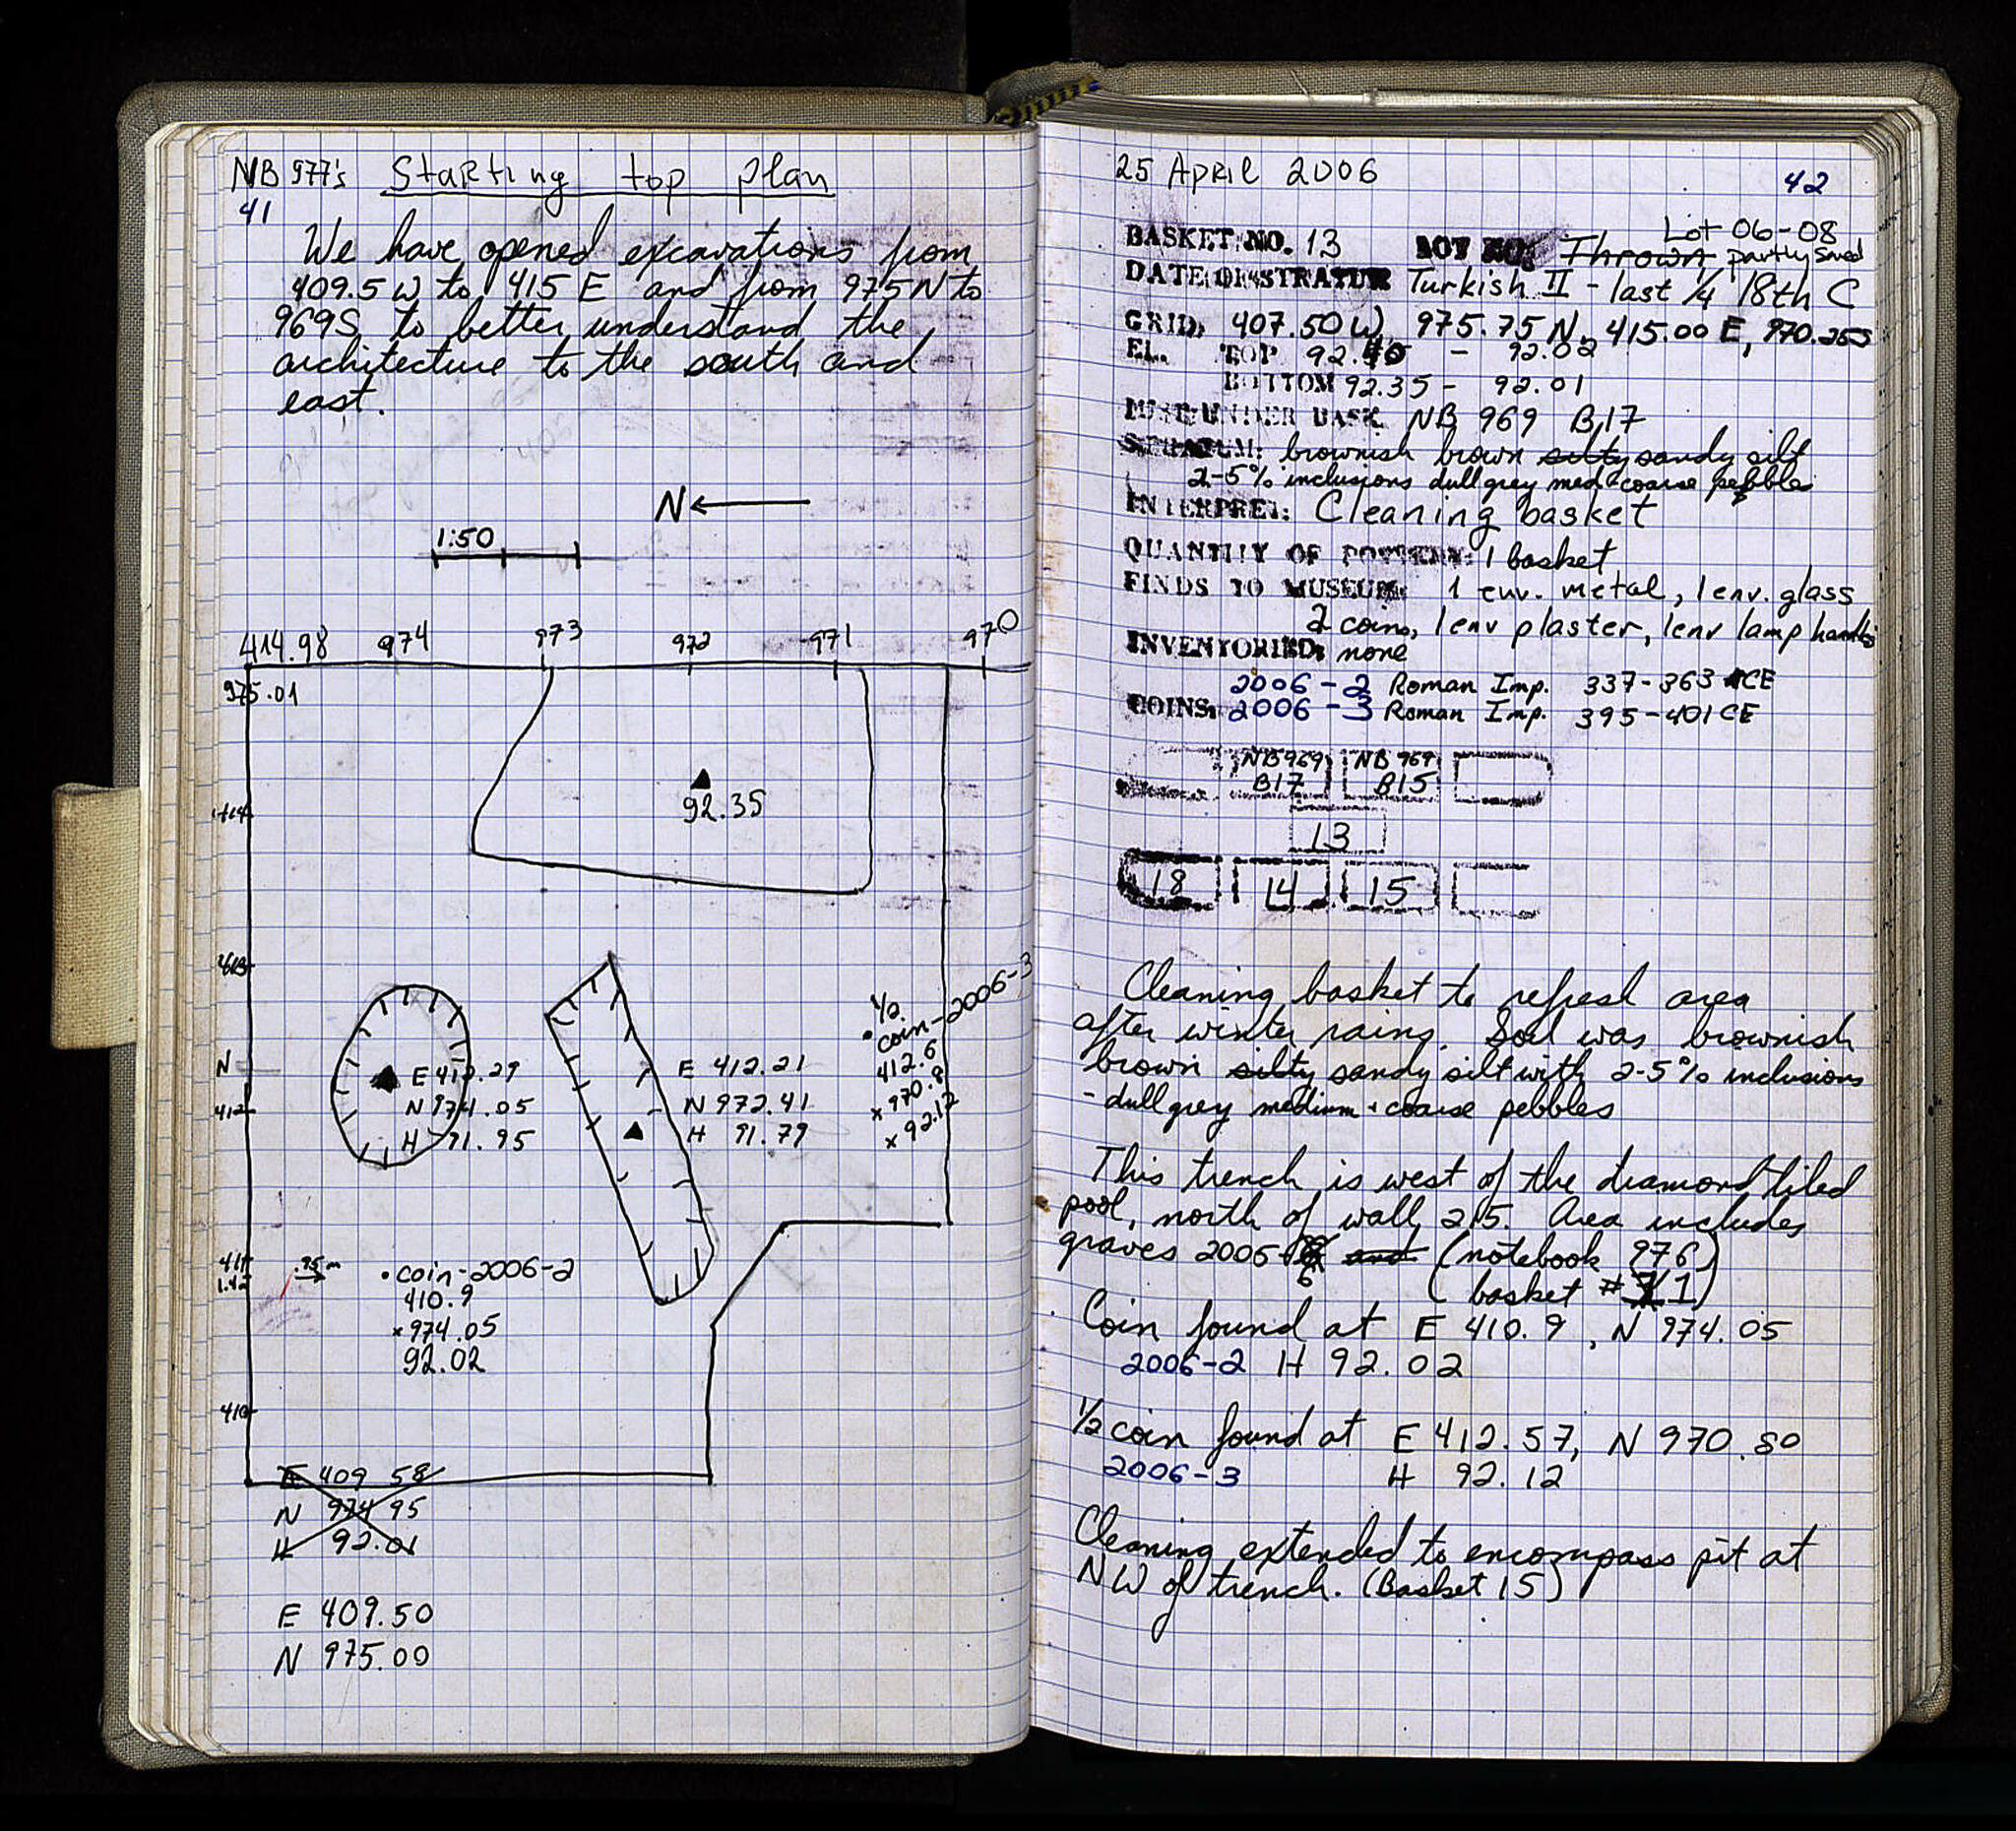 NB 977's Starting top plan
41
We have opened excavations from
409.5 W to 415 E and from 975 N to
969 S to better understand the
architecture to the south and
east.
N
1:50
414.98 974 973 972 971 970
975.01
92.35
414
413
1/2
coin-2006-3
412.6
x 970.8
x 92.12
N
E 412.29
N 974.05
H 91.95
E 412.21
N 972.41
H 91.79
412
411
.95m
coin-2006-2
410.9
x 974.05
92.02
410
E 409 58
N 974 95
H 92.01
E 409.50
N 975.00
25 April 2006
42
Lot 06-08
BASKET NO. 13 LOT NO. Thrown partly saved
DATE OF STRATUM Turkish II - last 1/4 18th C
GRID: 407.50 W, 975.75 N, 415.00 E, 970.25 S
EL. TOP 92.40 - 92.02
BOTTOM 92.35 - 92.01
UNDER BASK. NB 969 B17
STRATUM: brownish brown silty sandy silt
2-5% inclusions dull grey med + coarse pebbles
INTERPRET: Cleaning basket
QUANTITY OF POTTERY: 1 basket
FINDS TO MUSEUM: 1 env. metal, 1 env. glass
2 coins, 1 env plaster, 1 env lamp handle
INVENTORIED: none
2006-2 Roman Imp. 337-363 CE
COINS: 2006-3 Roman Imp. 395-401 CE
NB 969 NB 969
B17 B15
13
18 14 15
Cleaning basket to refresh area
after winter rains. Soil was brownish
brown silty sandy silt with 2-5% inclusions
- dull grey medium + coarse pebbles
This trench is west of the diamond tiled
pool, north of wall 215. Area includes
graves 2005-6 and (notebook 976)
( basket # 1)
Coin found at E 410.9, N 974.05
2006-2 H 92.02
1/2 coin found at E 412.57, N 970.80
2006-3 H 92.12
Cleaning extended to encompass pit at
NW of trench. (Basket 15)